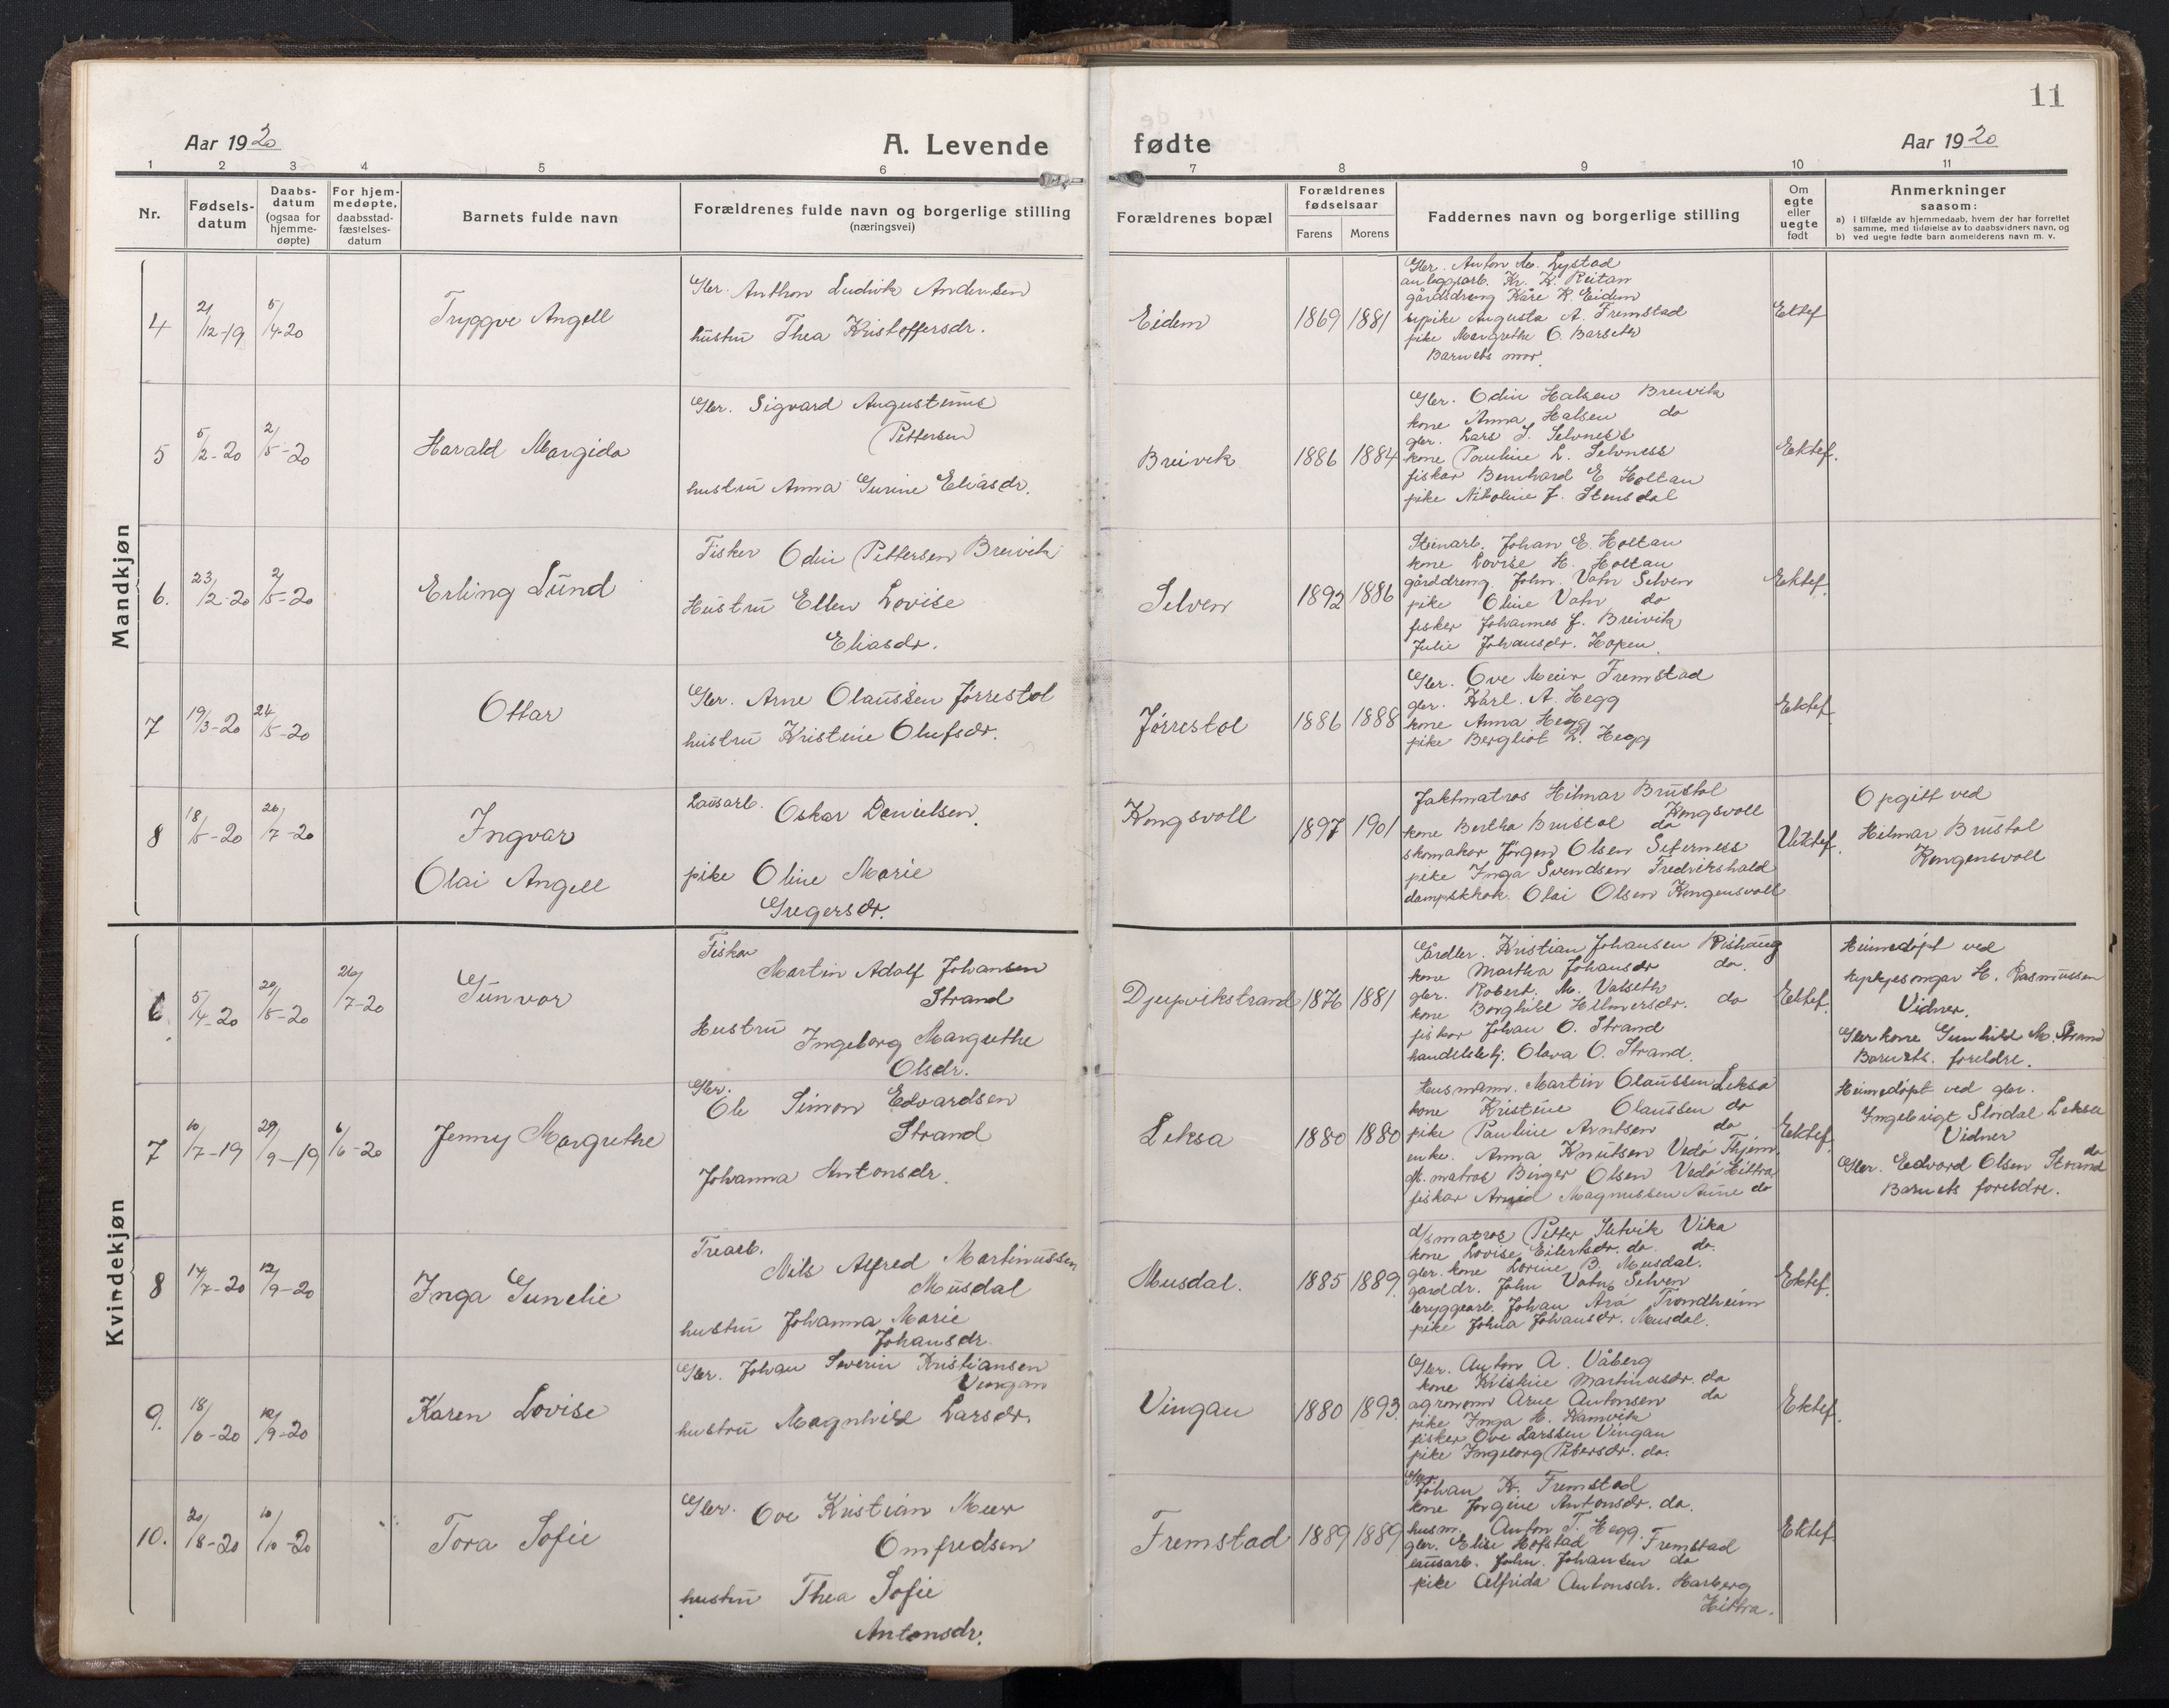 11
Aar 1920
A. Levende
fødte
Aar 1920
1 2 3 4 5 6 7 8 9 10 11
Nr.
Fødsels-
datum
Daabs-
datum
(ogsaa for
hjemme-
døpte)
For hjem-
medøpte,
daabsstad-
fæstelses-
datum
Barnets fulde navn
Forældrenes fulde navn og borgerlige stilling
(næringsvei)
Forældrenes bopæl
Forældrenes
fødselsaar
Farens Morens
Faddernes navn og borgerlige stilling
Om
egte
eller
uegte
født
Anmerkninger
saasom:
a) i tilfælde av hjemmedaab, hvem der har forrettet
samme, med tilføielse av to daabsvidners navn, og
b) ved uegte fødte barn anmelderens navn m. v.
Mandkjøn
4
21/12-19
5/4-20
Tryggve Angell
Gbr. Anthon Ludvik Andersen
hustru Thea Kristoffersdr.
Eidem
1869 1881
Gbr. Anton M. Lystad
anleggsarb. Kr. K. Reitan
gårdsdreng Kåre K. Eidem
pike Augusta A. Fremstad
pike Margrethe O. Barseth
Barnets mor.
Ektef
5
5/2-20
2/5-20
Harald Margido
Gbr. Sigvard Augustinus
Pettersen
hustru Anna Gurine Eliasdr.
Breivik
1886 1884
Gbr. Odin Halsen Breivik
kone Anna Halsen do
gbr. Lars J. Selvness
kone Pauline L. Selvness
fisker Bernhard E Holtan
pike Nikoline J. Stensdal
Ektef.
6.
23/2-20
2/5-20
Erling Lund
Fisker Odin Pettersen Breivik
Hustru Ellen Lovise
Eliasdr.
Selven
1892 1886
Steinarb. Johan E. Holtan
kone Lovise H. Holtan
gårddreng John Vatn Selven
pike Oline Vatn do
fisker Johannes J. Breivik
Julie Johansdr. Hopen.
Ektef.
7
19/3-20
24/5-20
Ottar
Gbr. Arne Olaussen Jørrestol
hustru Kristine Olufsdr.
Jørrestol
1886 1888
Gbr. Ove Meier Fremstad
gbr. Karl. A. Hegg
kone Anna Hegg
pike Bergliot L. Hegg
Ektef
8
18/5-20
26/7-20
Ingvar
Olai Angell
Lausarb. Oskar Danielsen.
pike Oline Marie
Gregersdr.
Kongsvoll
1897 1901
Jaktmatros Hilmar Brustol
Kongsvoll
kone Bertha Brustol do
skomaker Jørgen Olsen Seterness
pike Inga Svendsen Fredrikshald
dampskkok. Olai Olsen Kongensvoll
Uektef.
Opgitt ved
Hilmar Brustol
Kongensvoll
Kvindekjøn
6
5/4-20
20/5-20
26/7-20
Gunvor
Fisker
Martin Adolf Johansen
Strand
Hustru
Ingeborg Margrethe
Olsdr.
Djupvikstrand
1876 1881
Gårdbr. Kristian Johansen Rishaug
kone Martha Johansdr do.
gbr. Robert. M. Valseth
kone Borghild Hilmersdr. do
fisker Johan O. Strand
handelsbetj. Olava O. Strand.
Ektef.
Heimedøpt ved
kyrkjesongar H. Rasmussen
Vidner.
Gbr kone Gunhild M. Strand
Barnets. foreldre.
7
10/7-19
29/9-19
6/6-20
Jenny Margrethe
Gbr.
Ole Simon Edvardsen
Strand
Johanna Antonsdr.
Leksa
1880 1880
Husmann. Martin Olaussen Leksa
kone Kristine Olaussen do
pike Pauline Arntsen do
enke. Anna Knutsen Vedø Hjem.
matros Birger Olsen Vedø Hittra
fisker Arvid Magnussen Aune do
Ektef.
Heimedøpt ved gbr.
Ingebrigt Slordal Leksa
Vidner
Gbr. Edvard Olsen Strand do
Barnets foreldre.
8
14/7-20
12/9-20
Inga Gunelie
Trearb.
Nils Alfred Martinussen
Musdal
hustru Johanna Marie
Johansdr.
Musdal.
1885 1889.
d/smatros Petter Sletvik Vika
kone Lovise Eilertsdr. do. do.
gbr. kone Lorine B. Musdal.
garddr. John Vatn Selven
bryggearb. Johan Arø Trondheim
pike Johna Johansdr. Musdal.
Ektef.
9.
18/6-20
12/9-20
Karen Lovise
Gbr. Johan Severin Kristiansen
Vingan
hustru Magnhild Larsdr.
Vingan
1880 1893.
Gbr. Anton A. Våberg
kone Kristine Martinusdr. do
agronom Arne Antonsen do
pike Inga H. Hamvik
fisker Ove Larssen Vingan
pike Ingeborg Petersdr. do.
Ektef.
10.
20/8-20
10/10-20
Tora Sofie
Gbr. Ove Kristian Meer
Omfredsen
hustru Thea Sofie
Antonsdr.
Fremstad
1889 1889
Gbr.
Johan K. Fremstad
kone Jorgine Antonsdr. do.
husm. Anton T. Hegg.
gbr. Elise Hofstad Fremstad
lausarb. John. Johansen do
pike Alfrida Antonsdr. Harberg
Hittra.
Ektef.